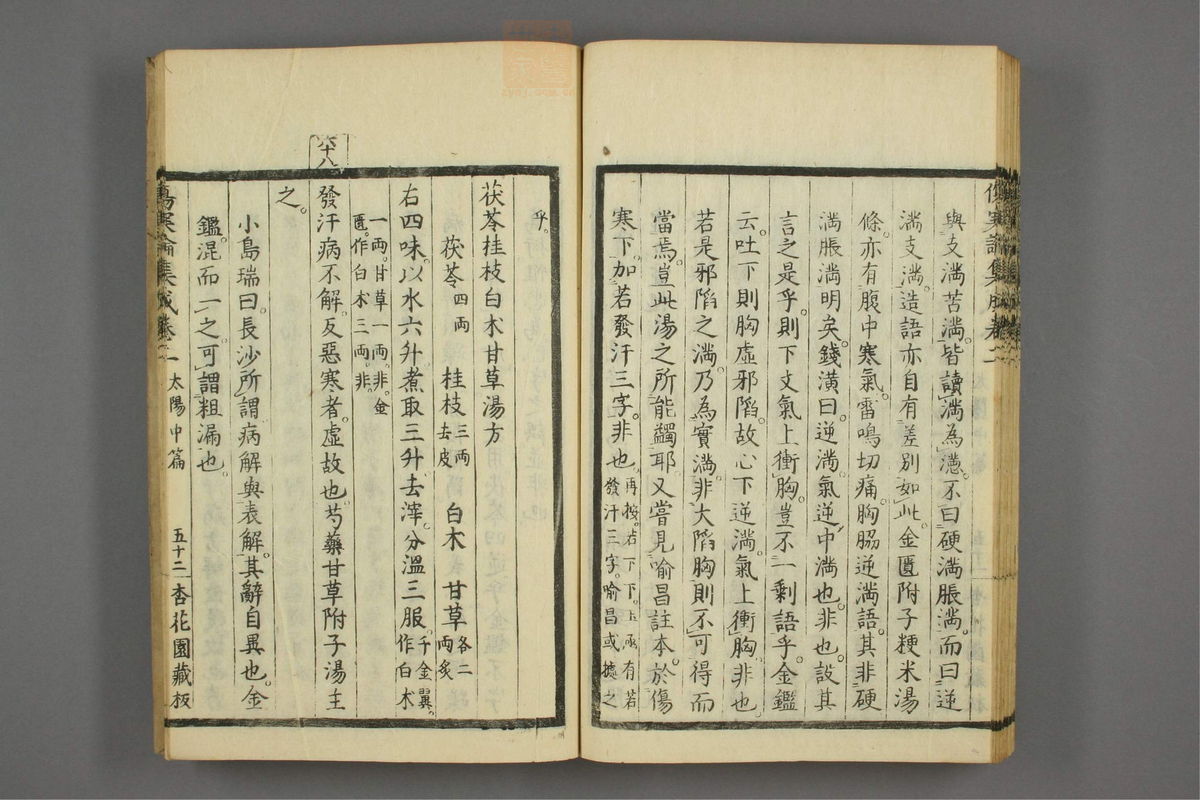 與支滿苦滿。皆讀滿為懣。不曰硬滿脹滿。而曰逆
滿支滿。造語亦自有差別如此。金匱附子粳米湯
條。亦有腹中寒氣。雷鳴切痛。胸脇逆滿語。其非硬
滿脹滿明矣。錢潢曰。逆滿。氣逆中滿也。非也。設其
言之是乎。則下文氣上衝胸。豈不一剩語乎。金鑑
云。吐下則胸虛邪陷。故心下逆滿。氣上衝胸。非也。
若是邪陷之滿。乃為實滿。非大陷胸則不可得而
當焉。豈此湯之所能蠲耶。又嘗見喻昌註本。於傷
寒下。加若發汗三字。非也。再按。若下下。玉函有若
發汗三字。喻昌或據之
乎。
茯苓桂枝白朮甘草湯方
茯苓四両 桂枝三両去皮 白朮 甘草各二両炙
右四味。以水六升。煮取三升。去滓。分溫三服。千金翼。作白朮
一両。甘草一両。非。金
匱。作白朮三両。非。
六十八
發汗病不解。反惡寒者。虛故也。芍藥甘草附子湯主
之。
小島瑞曰。長沙所謂病解與表解。其辭自異也。金
鑑。混而一之。可謂粗漏也。
傷寒論集成卷二 太陽中篇 五十二 杏花園藏板